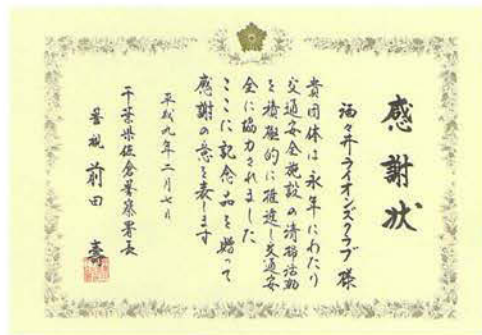 感謝状
酒々井ライオンズクラブ 様
貴団体は永年にわたり
交通安全施設の清掃活動
を積極的に推進し交通安
全に協力されました
ここに記念品を贈って
感謝の意を表します
平成九年二月七日
千葉県佐倉警察署長
警視 前田 壽